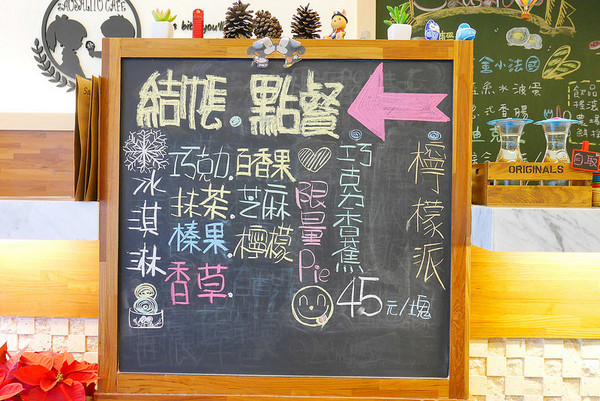 SAUSALITO CAFE
結帳.點餐
冰淇淋
巧克力.百香果
抹茶.芝麻
榛果.檸檬
香草.
限量Pie
巧克力香蕉
檸檬派
45元/塊
金小法國
ORIGINALS
自取